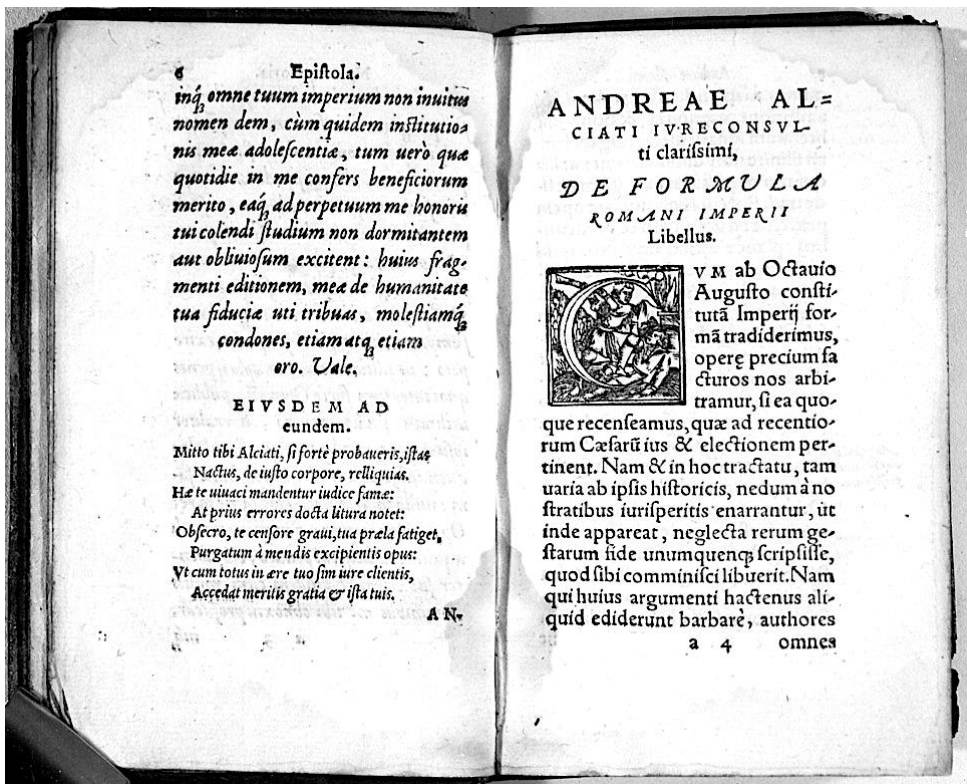 6 Epiſtola.
inq́ꝫ omne tuum imperium non inuitus
nomen dem, cùm quidem inſtitutio-
nis meæ adoleſcentiæ, tum uerò quæ
quotidie in me confers beneficiorum
merito, eaq́ꝫ ad perpetuum me honoris
tui colendi ſtudium non dormitantem
aut obliuioſum excitent: huius frag-
menti editionem, meæ de humanitate
tua fiduciæ uti tribuas, moleſtiamq́ꝫ
condones, etiam atqꝫ etiam
oro. Vale.
EIVSDEM AD
eundem.
Mitto tibi Alciati, ſi fortè probaueris, iſtas
Nactus, de iuſto corpore, relliquias.
Hæ te uiuaci mandentur iudice famæ:
At prius errores docta litura notet:
Obſecro, te cenſore graui, tua præla fatiget,
Purgatum à mendis excipientis opus:
Vt cum totus in ære tuo ſim iure clientis,
Accedat meritis gratia & iſta tuis.
AN-
ANDREAE AL=
CIATI IVRECONSVL-
ti clariſsimi,
DE FORMVLA
ROMANI IMPERII
Libellus.
CVM ab Octauio
Auguſto conſti-
tutã Imperij for-
mã tradiderimus,
operę precium fa
cturos nos arbi-
tramur, ſi ea quo-
que recenſeamus, quæ ad recentio-
rum Cæſarũ ius & electionem per-
tinent. Nam & in hoc tractatu, tam
uaria ab ipſis hiſtoricis, nedum à no
ſtratibus iuriſperitis enarrantur, ùt
inde appareat, neglecta rerum ge-
ſtarum fide unumquenqꝫ ſcripſiſſe,
quod ſibi comminiſci libuerit. Nam
qui huius argumenti hactenus ali-
quid ediderunt barbarè, authores
a 4 omnes